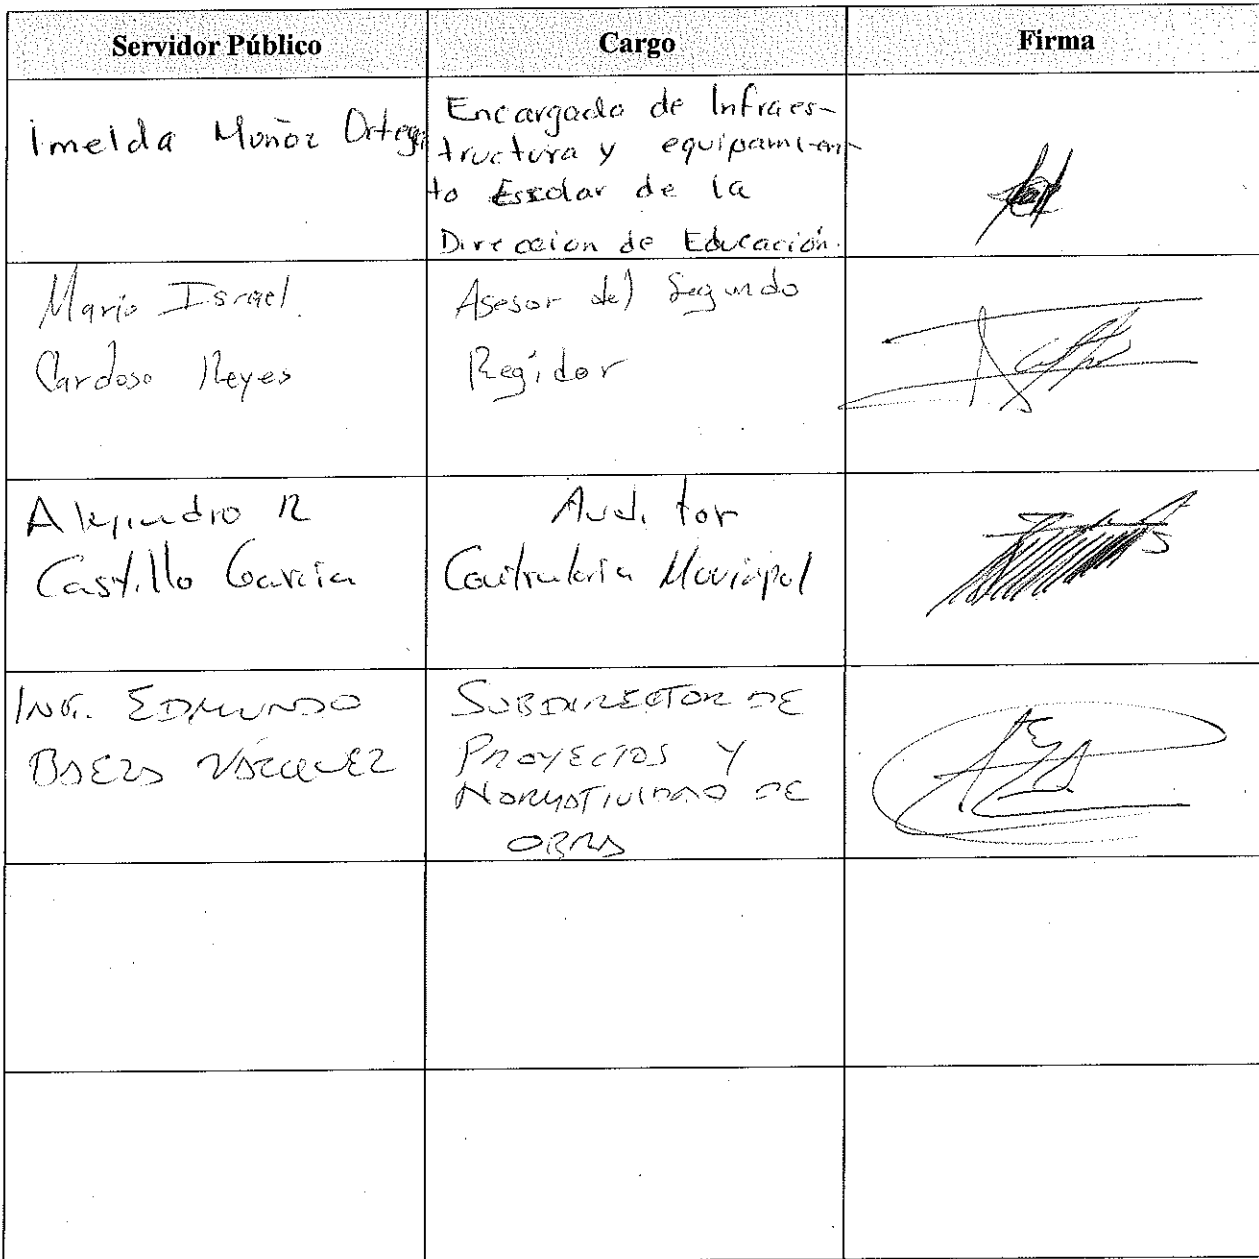 Servidor Público
Cargo
Firma
Imelda Muñoz Ortega
Encargado de Infraes-
tructura y equipamien-
to Escolar de la
Direccion de Educación.
Mario Israel.
Cardoso Reyes
Asesor del Segundo
Regidor
Alejandro R
Castillo García
Auditor
Contraloría Municipal
ING. EDMUNDO
BAEZA VÁZQUEZ
SUBDIRECTOR DE
PROYECTOS Y
NORMATIVIDAD DE
OBRA